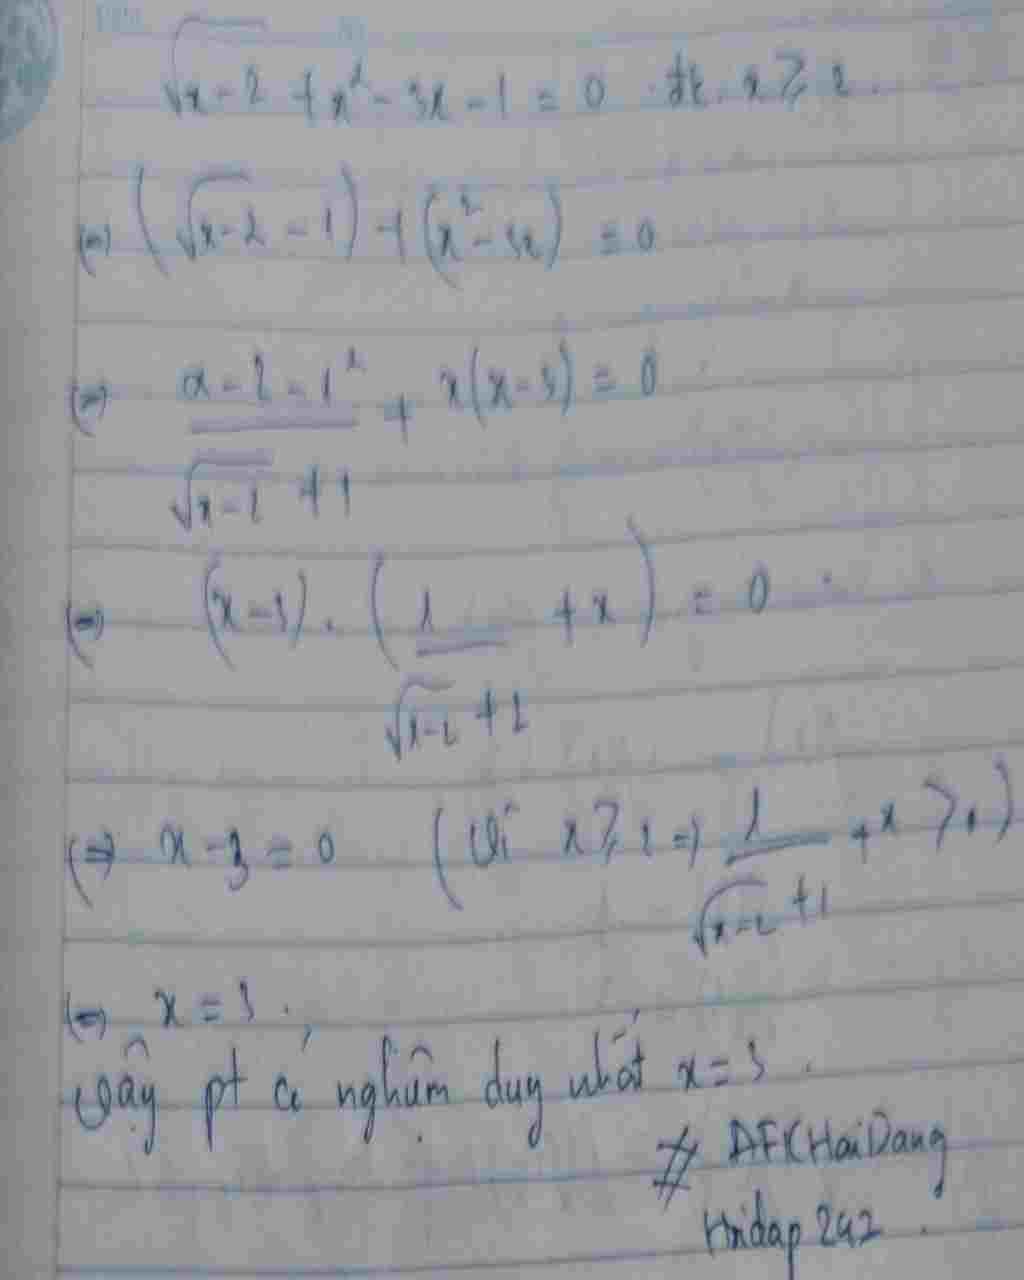 √(x-2) + x² - 3x - 1 = 0 đk x ≥ 2.
(=) (√(x-2) - 1) + (x² - 3x) = 0
(=) (x - 2 - 1²)/(√(x-2) + 1) + x(x-3) = 0
(=) (x-3) . (1/(√(x-2) + 1) + x) = 0
(=) x - 3 = 0 (Vì x ≥ 2 => 1/(√(x-2) + 1) + x > 0)
(=) x = 3.
Vậy pt có nghiệm duy nhất x = 3.
# AFKHaiDang
Hoidap 242.